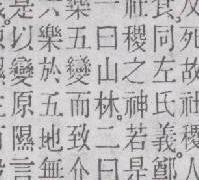 及死故社稷人
食同左氏義鄭
社稷之神若是
一曰山林二曰
樂五變而致介
六樂於五地無
是以變原隰言